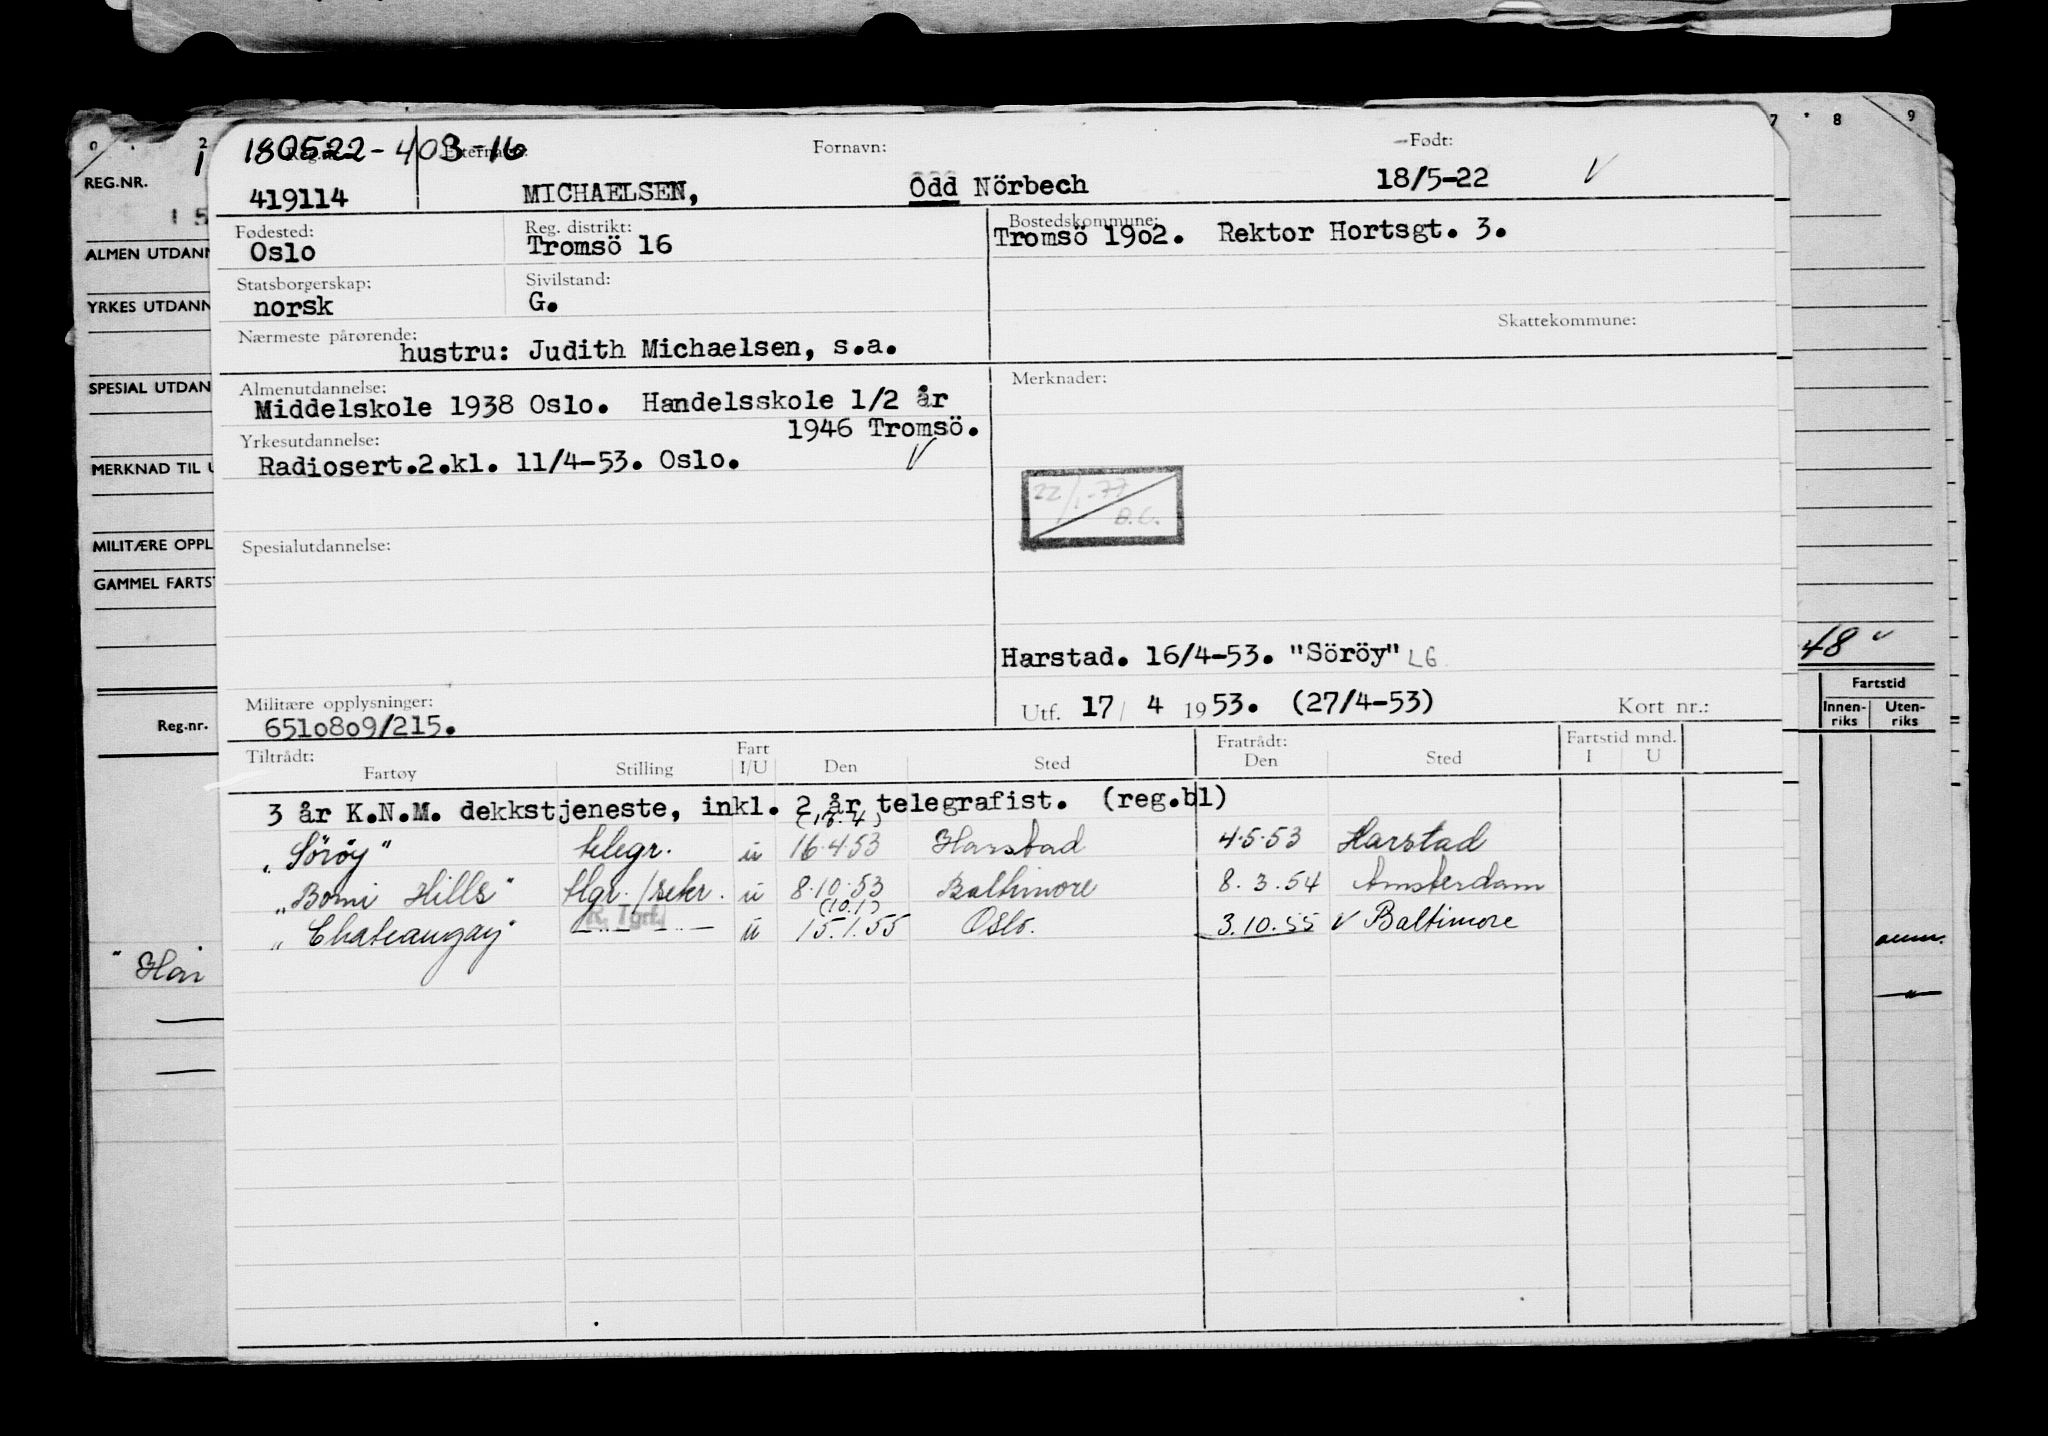 0 2 7 8 9
REG.NR. 1
180522-408-16
Reg.nr. Etternavn: Fornavn: Født:
419114 MICHAELSEN, Odd Nörbech 18/5-22 V
15
Fødested: Reg. distrikt: Bostedskommune:
Oslo Tromsö 16 Tromsö 1902. Rektor Hortsgt. 3.
ALMEN UTDANN
Statsborgerskap: Sivilstand:
norsk G.
YRKES UTDANN
Skattekommune:
Nærmeste pårørende:
hustru: Judith Michaelsen, s.a.
SPESIAL UTDAN
Almenutdannelse: Merknader:
Middelskole 1938 Oslo. Handelsskole 1/2 år
1946 Tromsö.
Yrkesutdannelse:
Radiosert.2.kl. 11/4-53. Oslo. V
MERKNAD TIL U
22/1-77
B.C.
MILITÆRE OPPL
Spesialutdannelse:
GAMMEL FARTST
48 v
Harstad. 16/4-53. "Söröy" LG
Militære opplysninger:
6510809/215.
Utf. 17/ 4 1953. (27/4-53) Kort nr.:
Fartstid
Innen-riks Uten-riks
Reg.nr.
Tiltrådt: Fart Fratrådt: Fartstid mnd.
Fartøy Stilling I/U Den Sted Den Sted I U
3 år K.N.M. dekkstjeneste, inkl. 2 år telegrafist. (reg.bl)
„Söröy" telegr. u 16.4.53 Harstad 4.5.53 Harstad
„Bomi Hills" tlgr./sekr. u 8.10.53 Baltimore 8.3.54 Amsterdam
R. Tgrf. (10.1)
„Chateaugay" —„— —„— u 15.1.55 Oslo. 3.10.55 V Baltimore